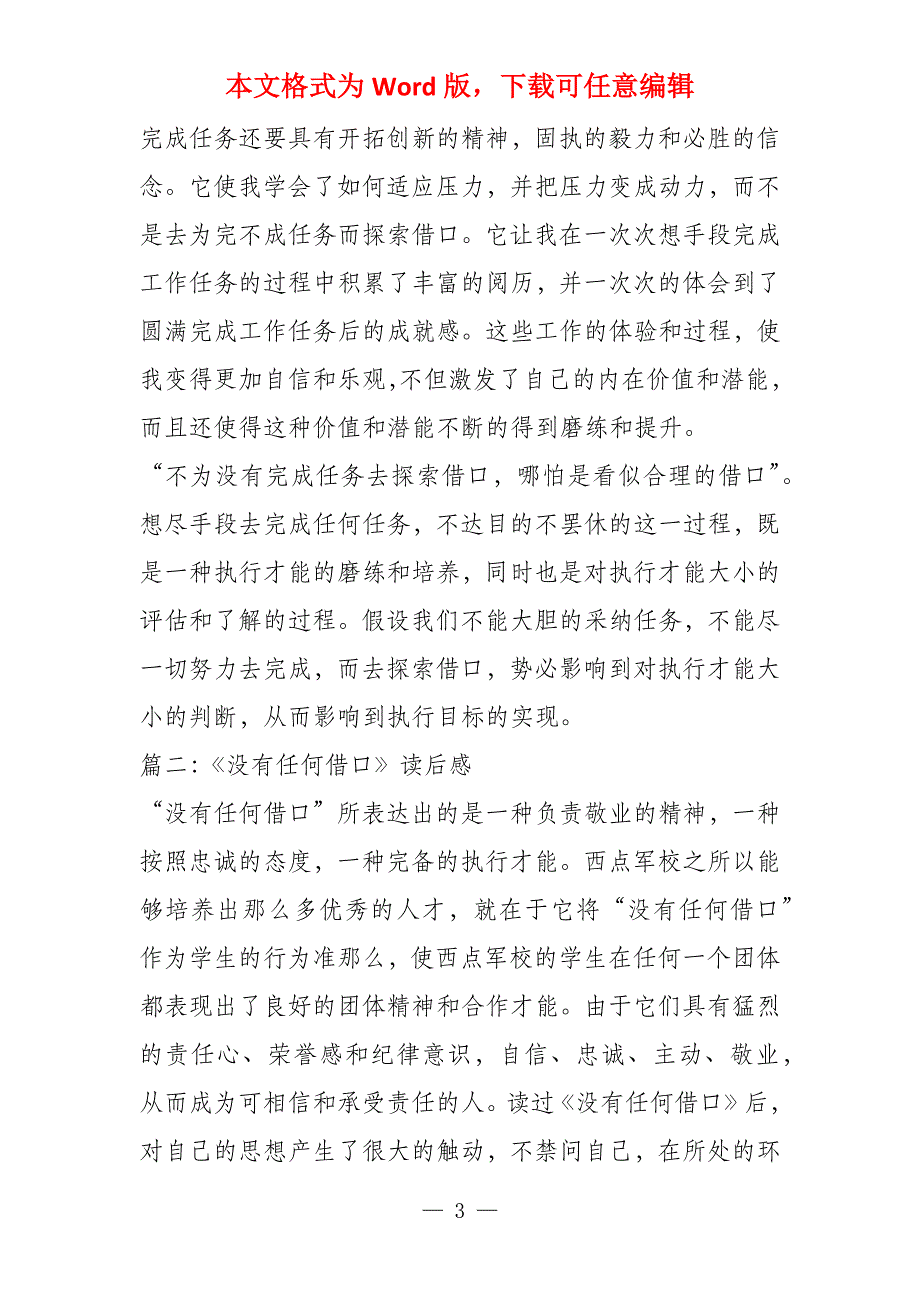 本文格式为 Word 版，下载可任意编辑
完成任务还要具有开拓创新的精神，固执的毅力和必胜的信
念。它使我学会了如何适应压力，并把压力变成动力，而不
是去为完不成任务而探索借口。它让我在一次次想手段完成
工作任务的过程中积累了丰富的阅历，并一次次的体会到了
圆满完成工作任务后的成就感。这些工作的体验和过程，使
我变得更加自信和乐观,不但激发了自己的内在价值和潜能，
而且还使得这种价值和潜能不断的得到磨练和提升。
“不为没有完成任务去探索借口，哪怕是看似合理的借口”。
想尽手段去完成任何任务，不达目的不罢休的这一过程，既
是一种执行才能的磨练和培养，同时也是对执行才能大小的
评估和了解的过程。假设我们不能大胆的采纳任务，不能尽
一切努力去完成，而去探索借口，势必影响到对执行才能大
小的判断，从而影响到执行目标的实现。
篇二：《没有任何借口》读后感
“没有任何借口”所表达出的是一种负责敬业的精神，一种
按照忠诚的态度，一种完备的执行才能。西点军校之所以能
够培养出那么多优秀的人才，就在于它将“没有任何借口”
作为学生的行为准那么，使西点军校的学生在任何一个团体
都表现出了良好的团体精神和合作才能。由于它们具有猛烈
的责任心、荣誉感和纪律意识，自信、忠诚、主动、敬业，
从而成为可相信和承受责任的人。读过《没有任何借口》后，
对自己的思想产生了很大的触动，不禁问自己，在所处的环
— 3 —